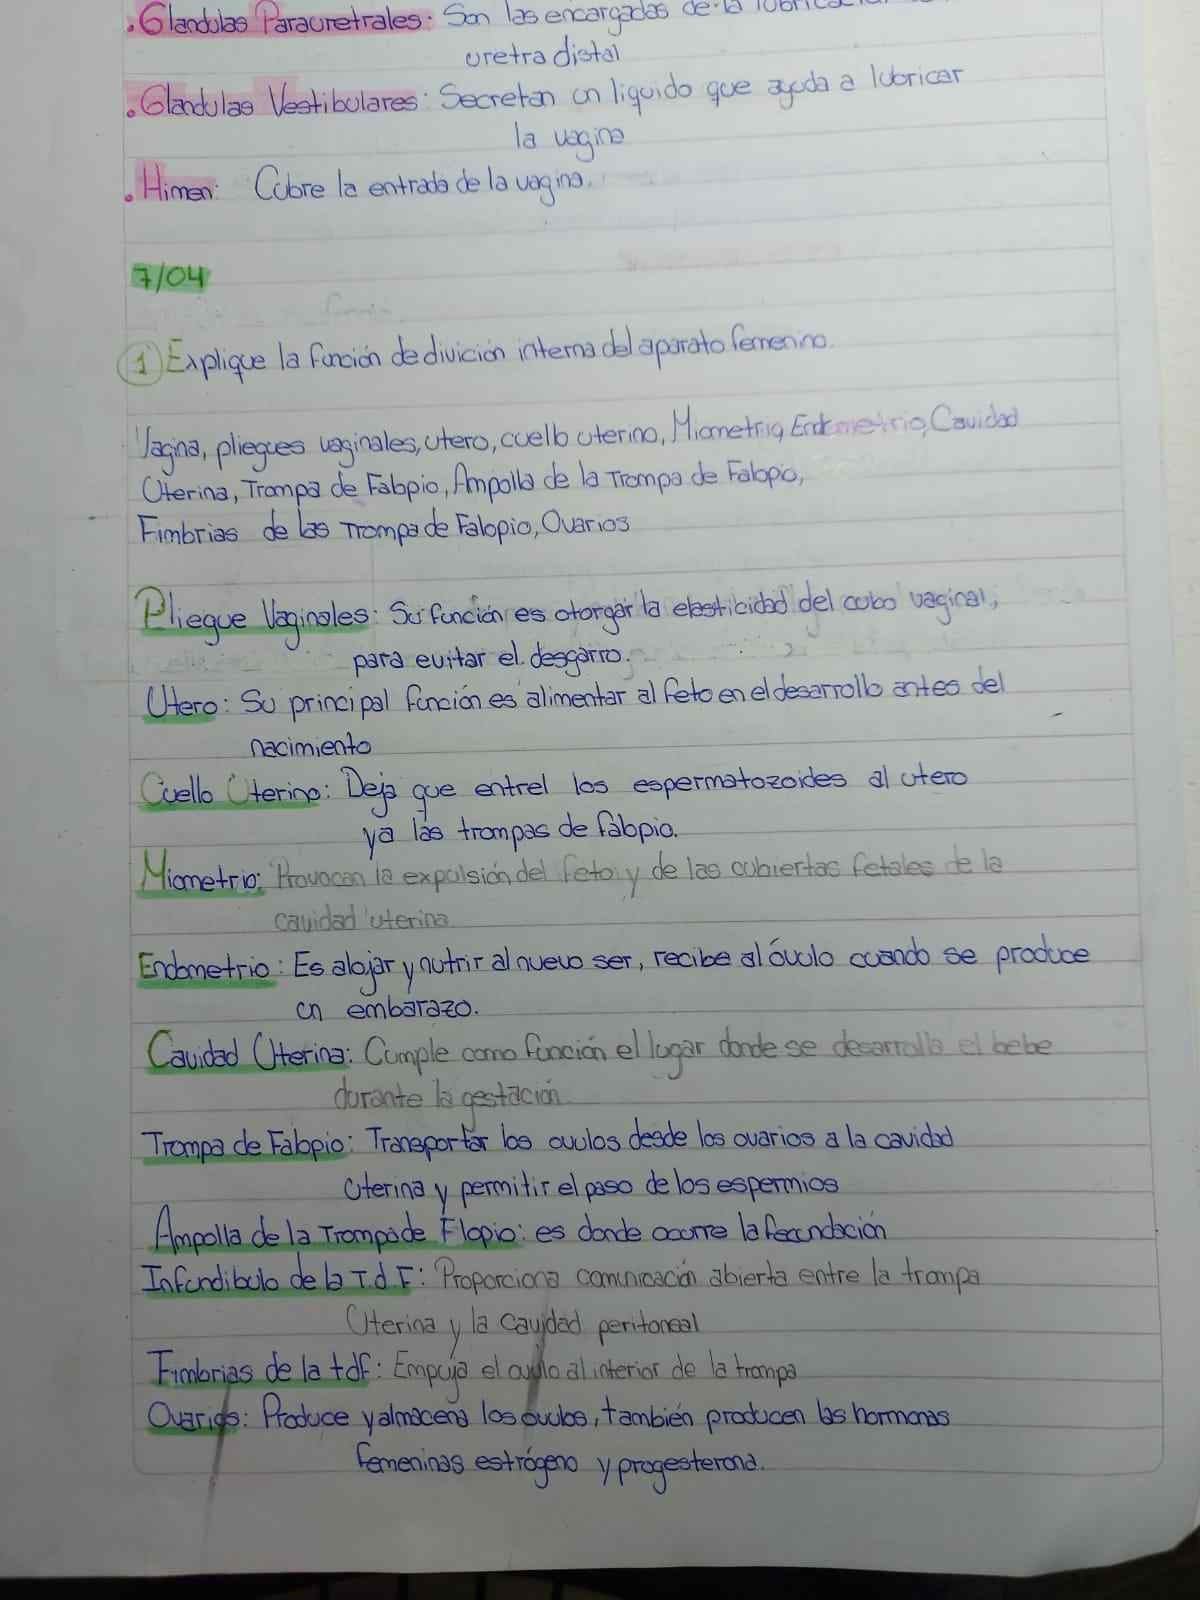 • Glandulas Parauretrales: Son las encargadas de la
uretra distal
• Glandulas Vestibulares: Secretan un liquido que ayuda a lubricar
la vagina
• Himen: Cubre la entrada de la vagina.
7/04
1 Explique la función de divición interna del aparato femenino.
Vagina, pliegues vaginales, utero, cuello uterino, Miometrio, Endometrio, Cavidad
Uterina, Trompa de Falopio, Ampolla de la Trompa de Falopio,
Fimbrias de las Trompa de Falopio, Ovarios
Pliegue Vaginales: Su función es otorgar la elasticidad del cubo vaginal,
para evitar el desgarro.
Utero: Su principal función es alimentar al feto en el desarrollo antes del
nacimiento
Cuello Uterino: Deja que entrel los espermatozoides al utero
ya las trompas de falopio.
Miometrio: Provocan la expulsión del feto y de las cubiertas fetales de la
cavidad uterina
Endometrio: Es alojar y nutrir al nuevo ser, recibe al óvulo cuando se produce
un embarazo.
Cavidad Uterina: Cumple como función el lugar donde se desarrolla el bebe
durante la gestación
Trompa de Falopio: Transportar los ovulos desde los ovarios a la cavidad
Uterina y permitir el paso de los espermios
Ampolla de la Trompa de Flopio: es donde ocurre la fecundación
Infundibulo de la T.d.F: Proporciona comunicación abierta entre la trompa
Uterina y la cavidad peritoneal
Fimbrias de la tdf: Empuja el ovulo al interior de la trompa
Ovarios: Produce y almacena los ovulos, también producen las hormonas
femeninas estrógeno y progesterona.